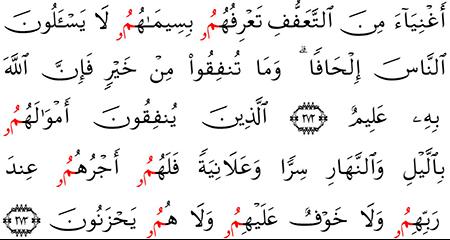 أَغْنِيَآءَ مِنَ ٱلتَّعَفُّفِ تَعْرِفُهُمُۥ بِسِيمَـٰهُمُۥ لَا يَسْـَٔلُونَ
ٱلنَّاسَ إِلْحَافًا ۗ وَمَا تُنفِقُوا۟ مِنْ خَيْرٍ فَإِنَّ ٱللَّهَ
بِهِۦ عَلِيمٌ ٢٧٣ ٱلَّذِينَ يُنفِقُونَ أَمْوَٰلَهُمُۥ
بِٱلَّيْلِ وَٱلنَّهَارِ سِرًّا وَعَلَانِيَةً فَلَهُمُۥ أَجْرُهُمُۥ عِندَ
رَبِّهِمُۥ وَلَا خَوْفٌ عَلَيْهِمُۥ وَلَا هُمُۥ يَحْزَنُونَ ٢٧٣